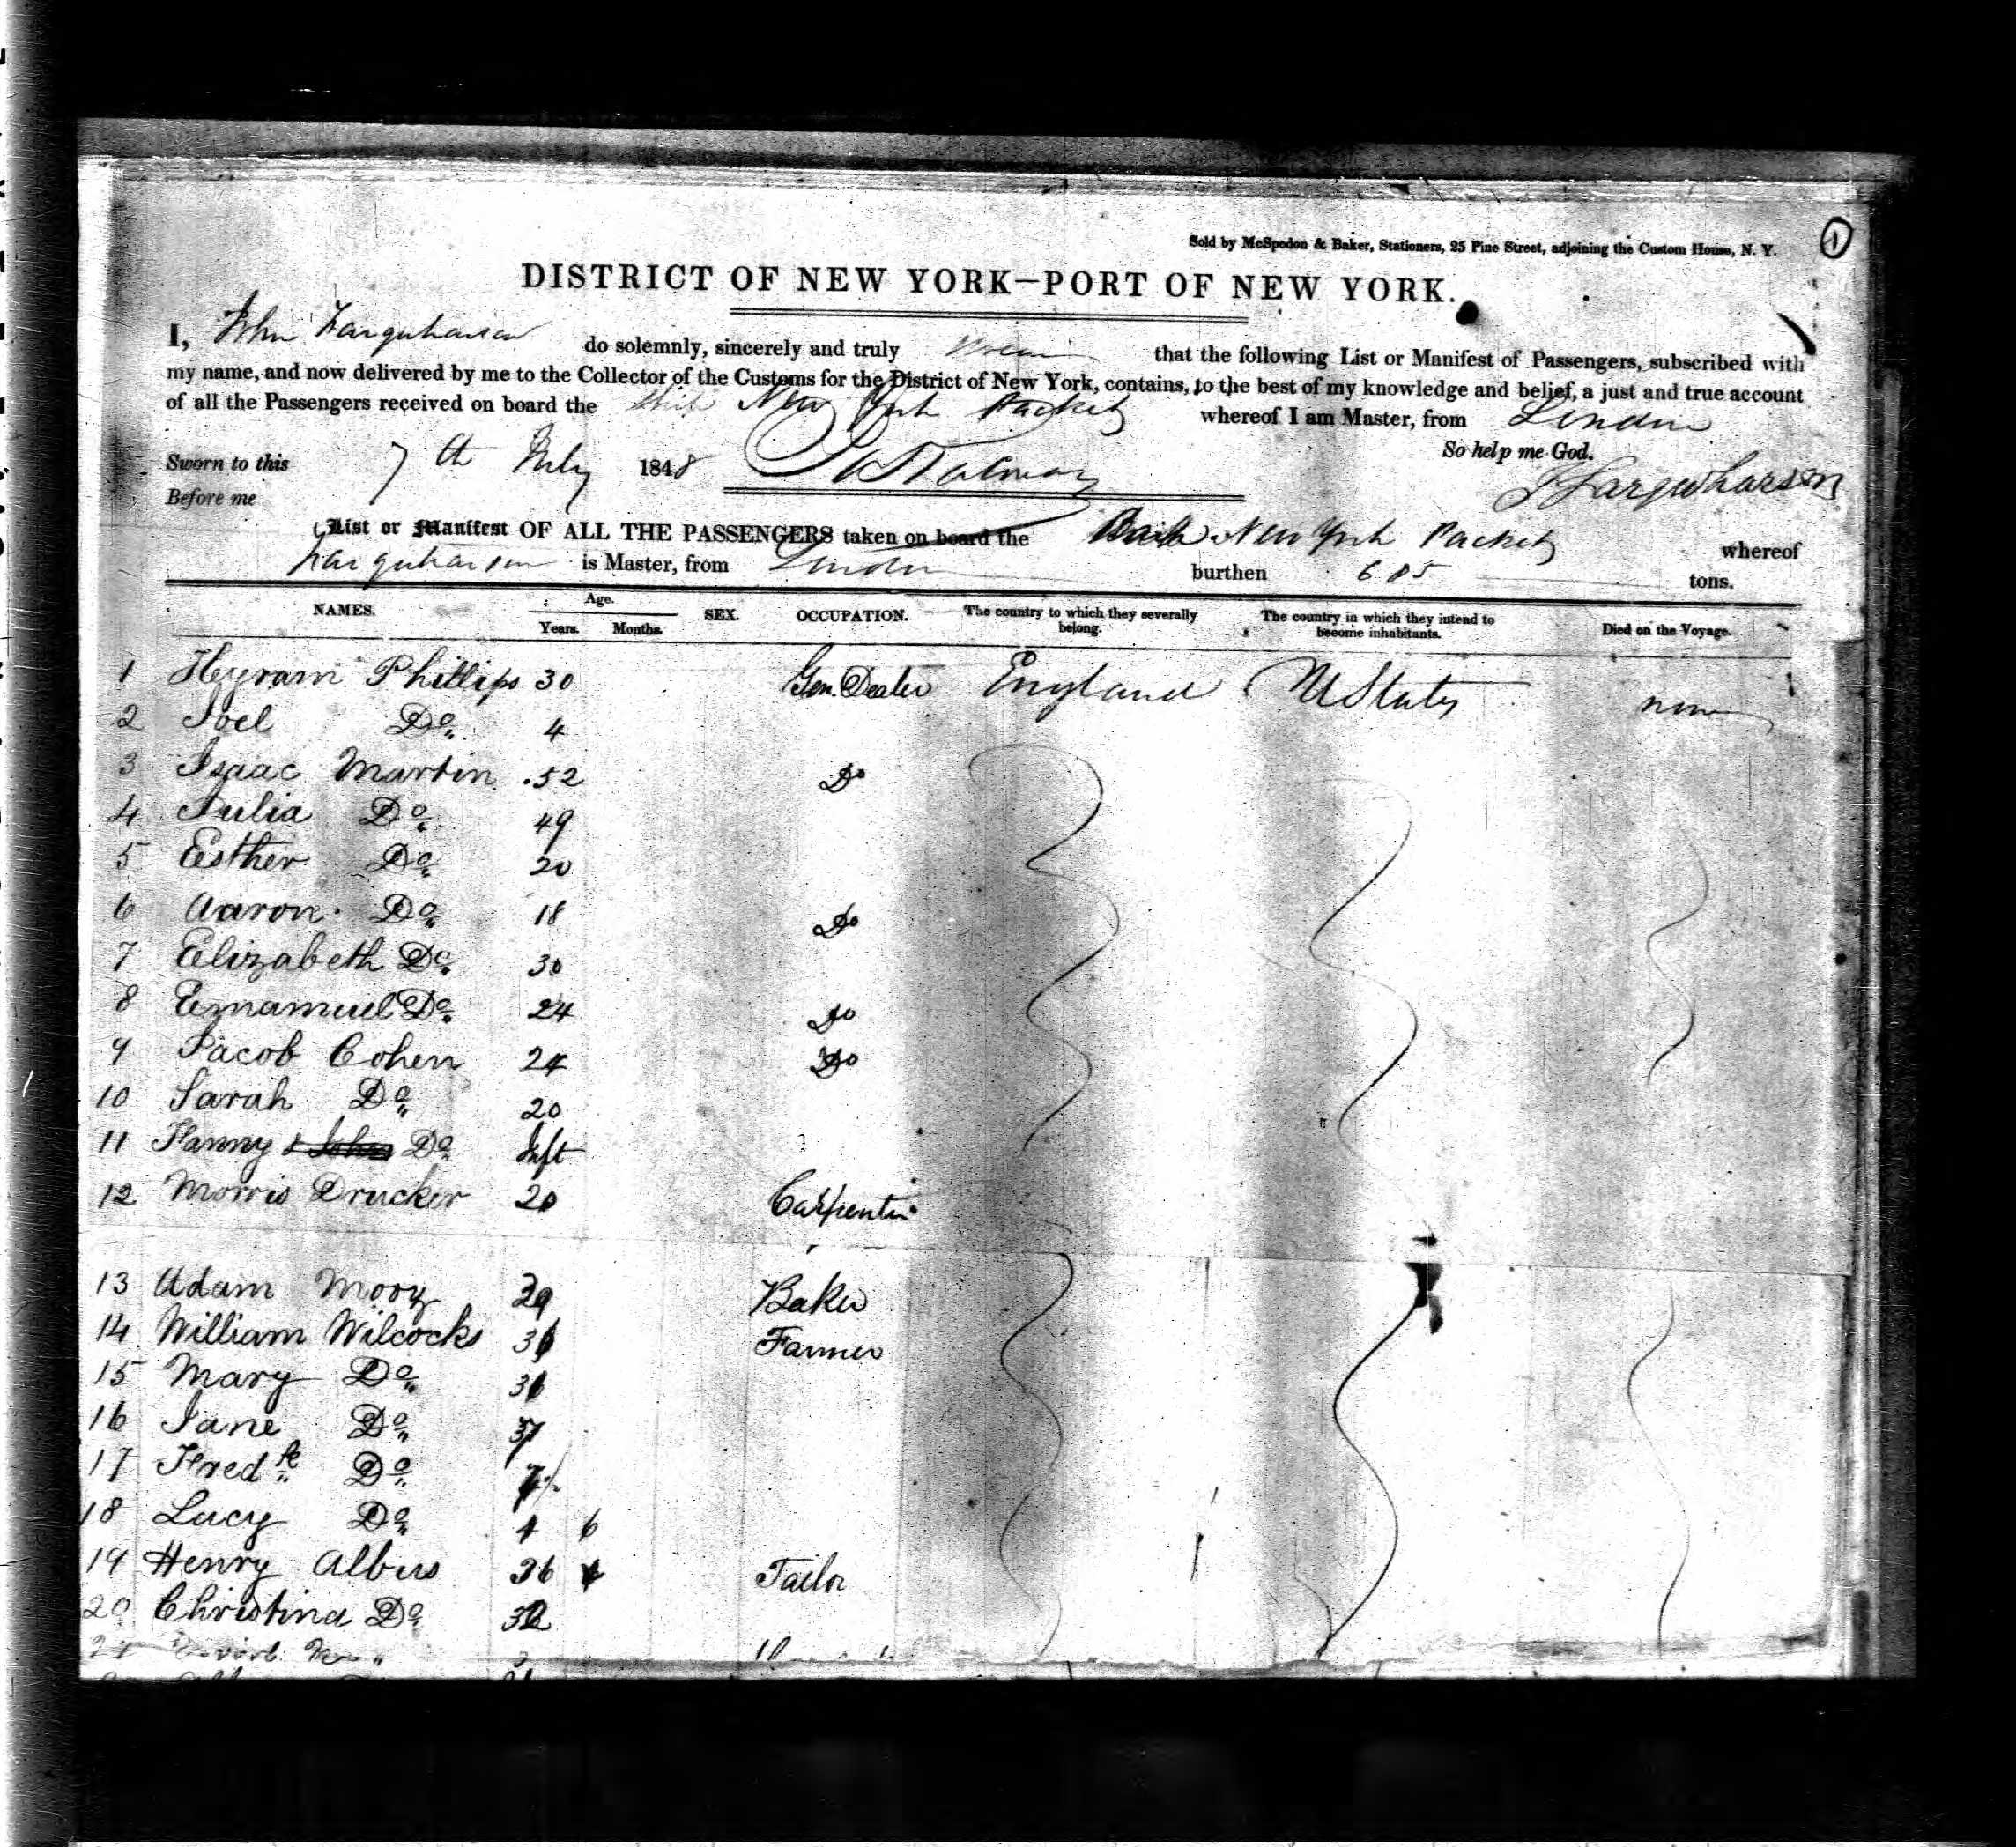 1
Sold by McSpedon & Baker, Stationers, 25 Pine Street, adjoining the Custom House, N. Y.
DISTRICT OF NEW YORK—PORT OF NEW YORK.
I, John Farquharson do solemnly, sincerely and truly swear that the following List or Manifest of Passengers, subscribed with
my name, and now delivered by me to the Collector of the Customs for the District of New York, contains, to the best of my knowledge and belief, a just and true account
of all the Passengers received on board the Ship New York Packet whereof I am Master, from London
So help me God.
Sworn to this 7th July 1848
J Farquharson
Before me
List or Manifest OF ALL THE PASSENGERS taken on board the Bark New York Packet whereof
Farquharson is Master, from London burthen 685 tons.
NAMES. Age. Years. Months. SEX. OCCUPATION. The country to which they severally belong. The country in which they intend to become inhabitants. Died on the Voyage.
1 Hyram Phillips 30 Gen. Dealer England U States none
2 Joel Do. 4
3 Isaac Martin 52 Do
4 Julia Do. 49
5 Esther Do. 20
6 Aaron Do. 18 Do
7 Elizabeth Do. 30
8 Emamuel Do. 24 Do
9 Jacob Cohen 24 Do
10 Sarah Do. 20
11 Fanny & John Do. Inft
12 Morris Drucker 20 Carpenter
13 Adam Mooy 29 Baker
14 William Wilcocks 36 Farmer
15 Mary Do. 36
16 Jane Do.
17 Fredk. Do.
18 Lucy Do. 6
19 Henry Albus 36 Tailor
20 Christina Do. 32
21